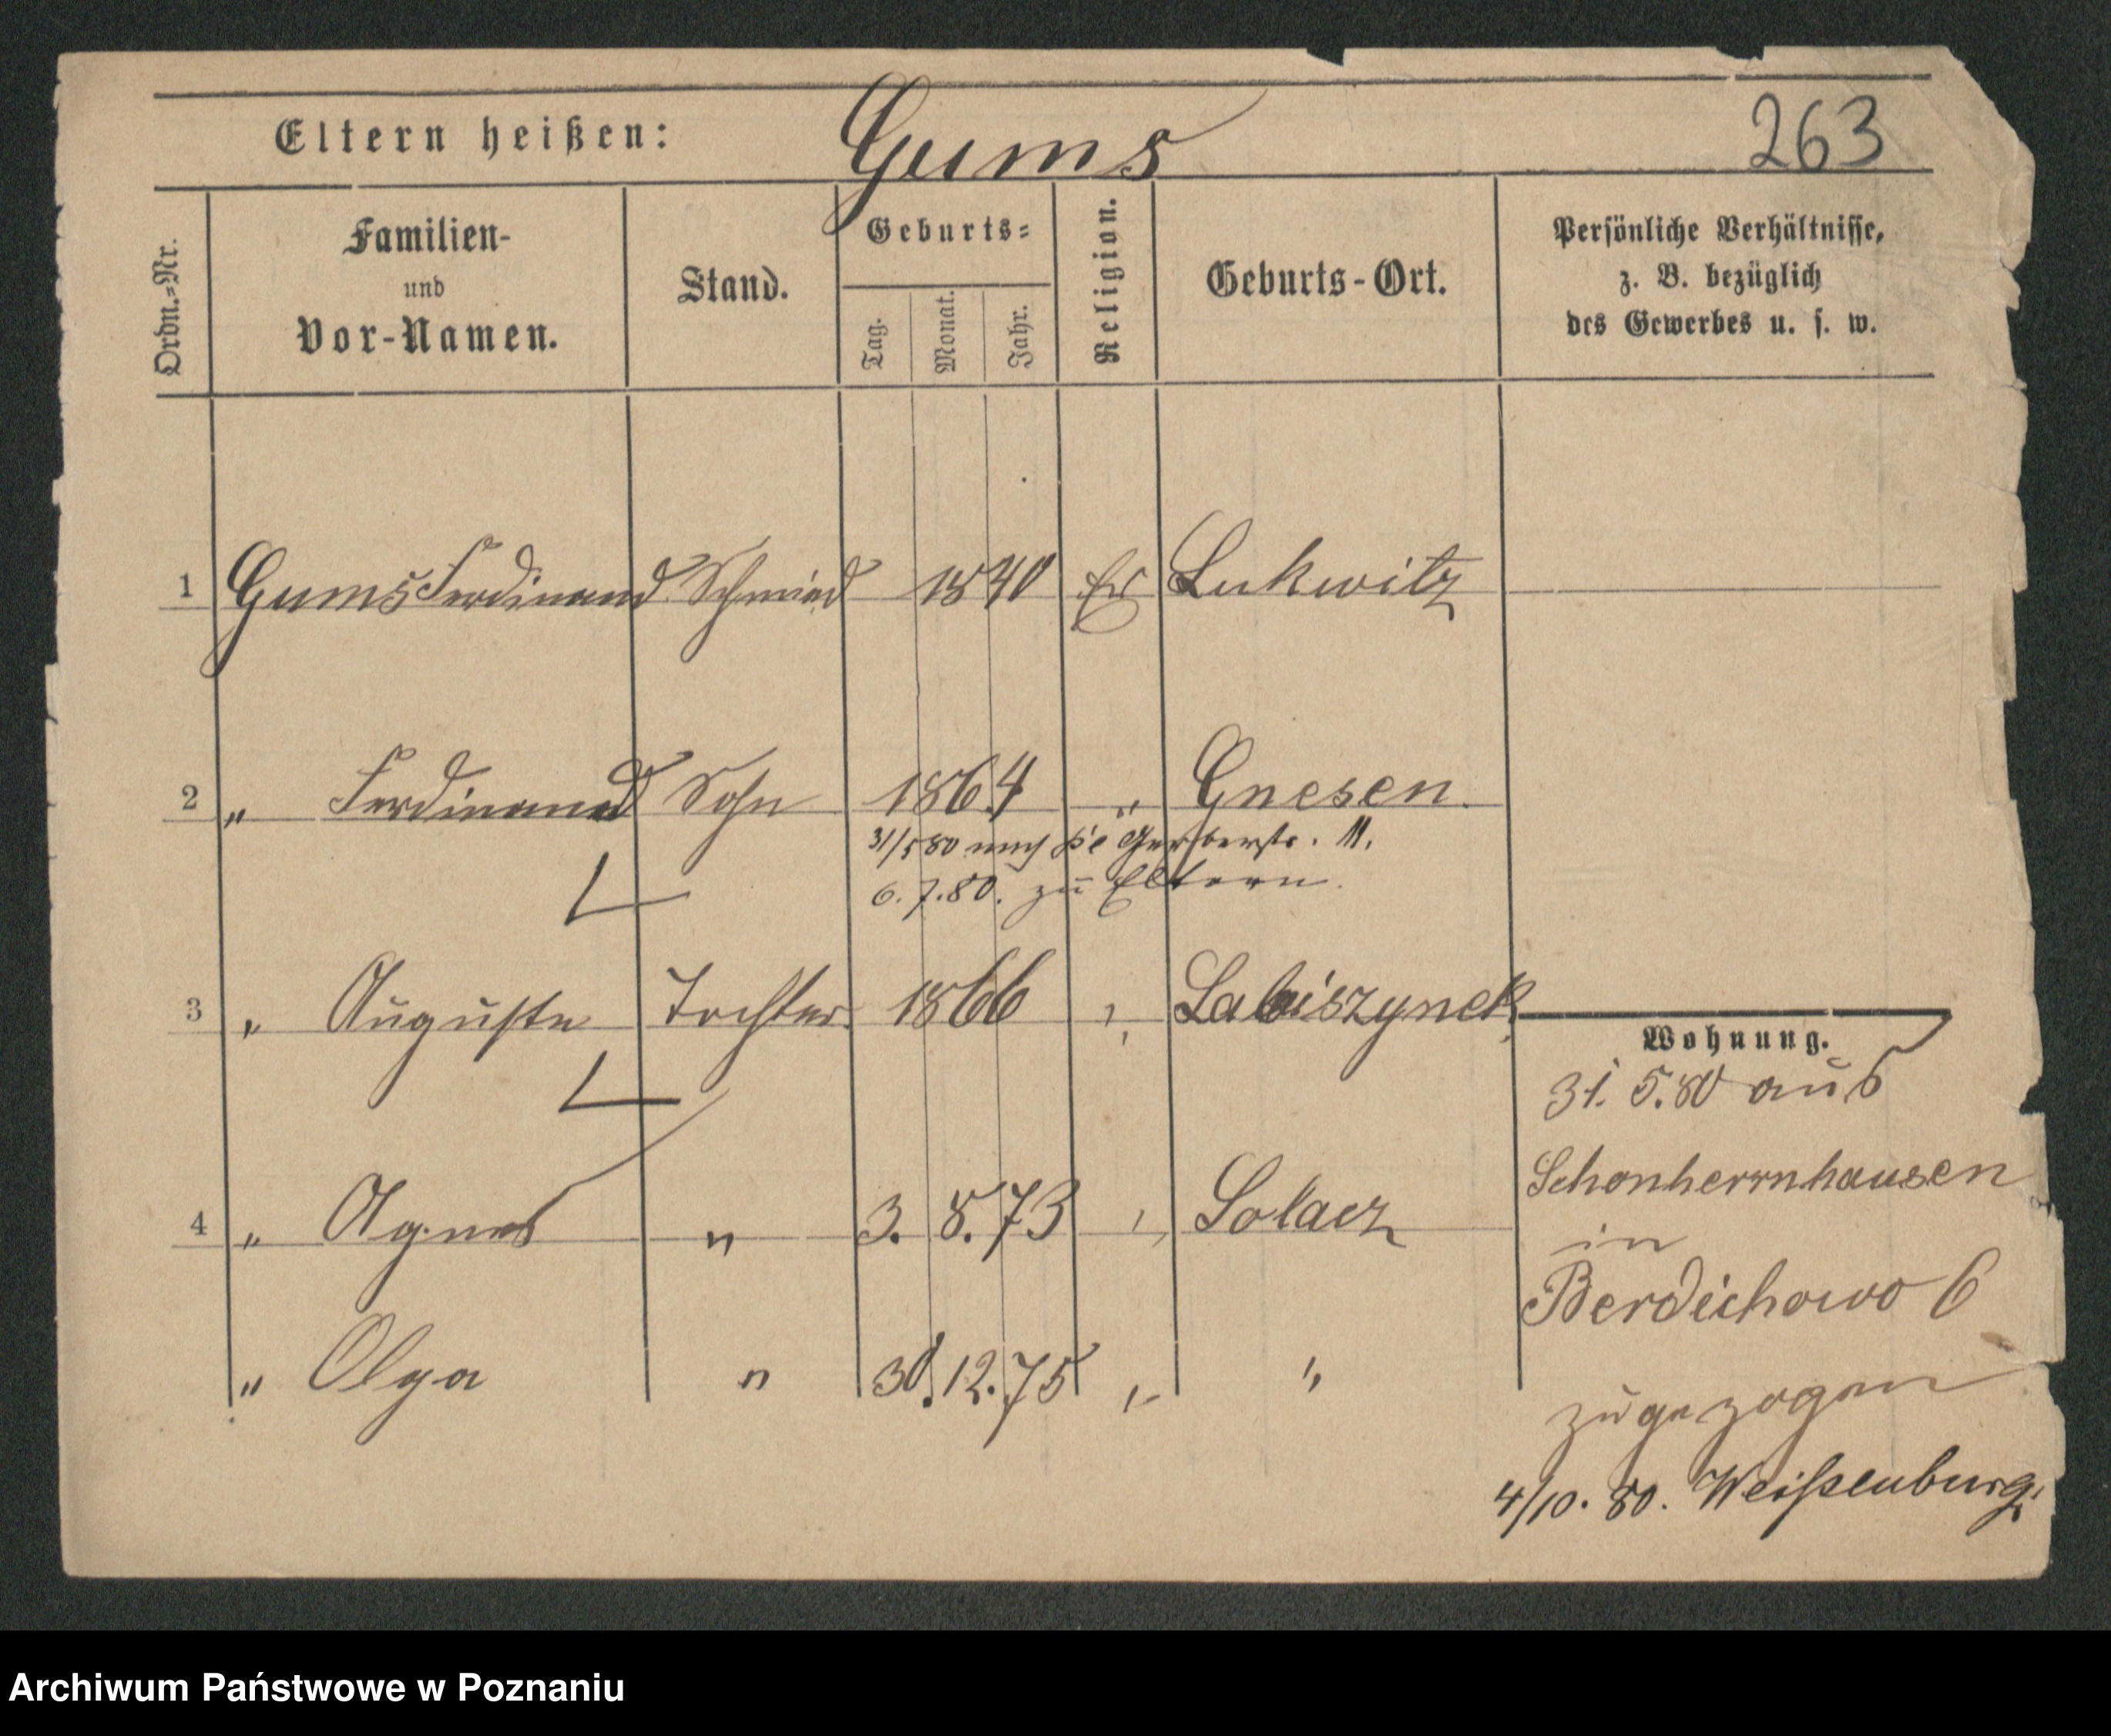 Eltern heißen: Gums 263
Ordn.-Nr.
Familien-
und
Vor-Namen.
Stand.
Geburts-
Tag. Monat. Jahr.
Religion.
Geburts-Ort.
Persönliche Verhältnisse,
z. B. bezüglich
des Gewerbes u. s. w.
1 Gums Ferdinand Schmied 1840 Ev Lukwitz
2 " Ferdinand Sohn 1864 " Gnesen
31/5 80 nach Gerberstr. 11.
6.7.80. zu Eltern.
3 " Auguste Tochter 1866 " Labiszynek
Wohnung.
31. 5. 80 aus
Schonherrnhausen
4 " Agnes " 3. 8. 73 " Solacz
in
Berdichowo 6
" Olga " 30. 12. 75 " "
zugezogen
4/10. 80. Weißenburg.
Archiwum Państwowe w Poznaniu